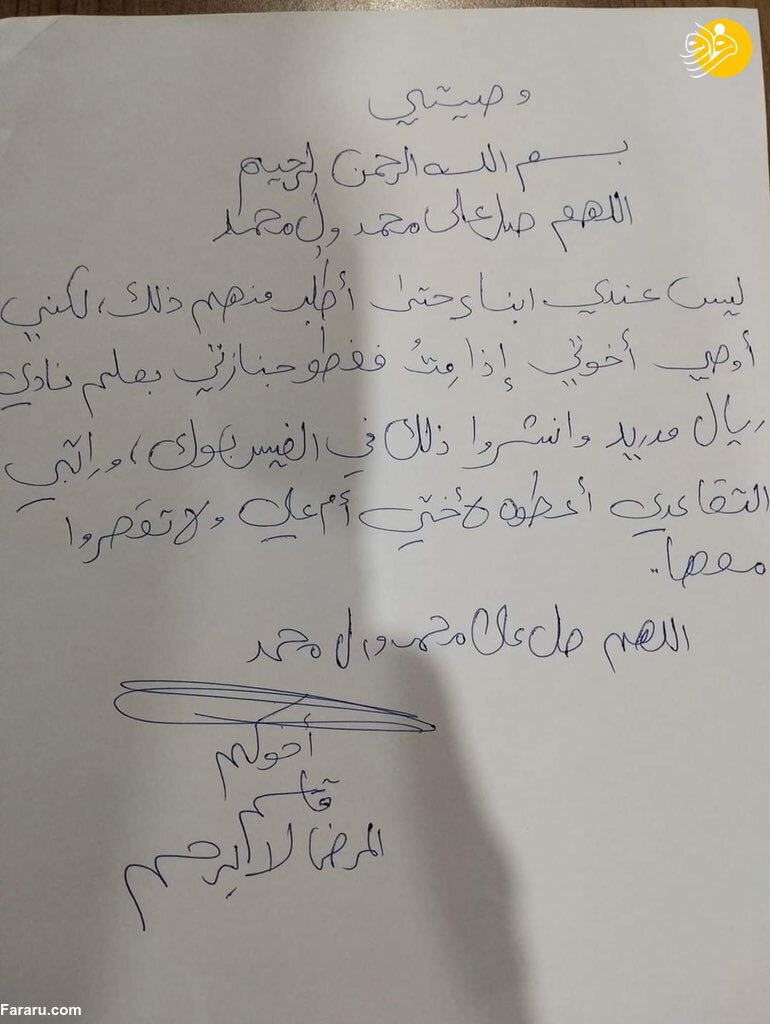 فرارو
وصيتي
بسم الله الرحمن الرحيم
اللهم صل على محمد وال محمد
ليس عندي ابناء حتى أطلب منهم ذلك، لكنني
أوصي أخوتي إذا مِتُ فغطو جنازتي بعلم نادي
ريال مدريد وانشروا ذلك في الفيس بوك، وراتبي
التقاعدي أعطوه لأختي أم علي ولا تقصروا
معها..
اللهم صل على محمد وال محمد
أخوكم
قاسم
Fararu.com